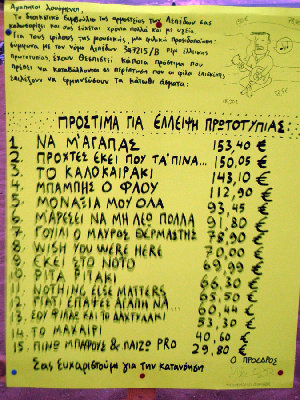 Αγαπητοί λουόμενοι,
Το διοικητικό συμβούλιο της
σας
καλωσορίζει και σας εύχεται χρόνια πολλά και με υγεία.
Για τους φίλους της μουσικής, μια φιλική προειδοποίηση:
Σύμφωνα με τον νόμο Λεξίδων 347215/Β περί έλλειψης
πρωτοτυπίας, έχουν θεσπιστεί κάποια πρόστιμα που
πρέπει να καταβάλλονται σε περίπτωση που οι φίλοι
επιλέξουν να ερμηνεύσουν τα κάτωθι άσματα:
ΠΡΟΣΤΙΜΑ ΓΙΑ ΕΛΛΕΙΨΗ ΠΡΩΤΟΤΥΠΙΑΣ:
1. ΝΑ Μ'ΑΓΑΠΑΣ 153,40 €
2. ΠΡΟΧΤΕΣ ΕΚΕΙ ΠΟΥ ΤΑ'ΠΙΝΑ... 150,05 €
3. ΤΟ ΚΑΛΟΚΑΙΡΑΚΙ 143,10 €
4. ΜΠΑΜΠΗΣ Ο ΦΛΟΥ 112,90 €
5. ΜΟΝΑΞΙΑ ΜΟΥ ΟΛΑ 93,45 €
6. Μ'ΑΡΕΣΕΙ ΝΑ ΜΗ ΛΕΩ ΠΟΛΛΑ 91,80 €
7. ΓΟΥΙΛΙ Ο ΜΑΥΡΟΣ ΘΕΡΜΑΣΤΗΣ 78,90 €
8. WISH YOU WERE HERE 70,00 €
9. ΕΚΕΙ ΣΤΟ ΝΟΤΟ 69,99 €
10. ΡΙΤΑ ΡΙΤΑΚΙ 66,30 €
11. NOTHING ELSE MATTERS 65,50 €
12. ΓΙΑΤΙ ΕΠΑΨΕΣ ΑΓΑΠΗ ΝΑ... 60,44 €
13. ΣΟΥ ΦΙΛΑΣ ΚΑΙ ΤΟ ΔΑΧΤΥΛΑΚΙ 53,30 €
14. ΤΟ ΜΑΧΑΙΡΙ 40,60 €
15. ΠΙΝΩ ΜΠΑΦΟΥΣ & ΠΑΙΖΩ PRO 29,80 €
Σας ευχαριστούμε για την κατανόηση
Ο ΠΡΟΕΔΡΟΣ